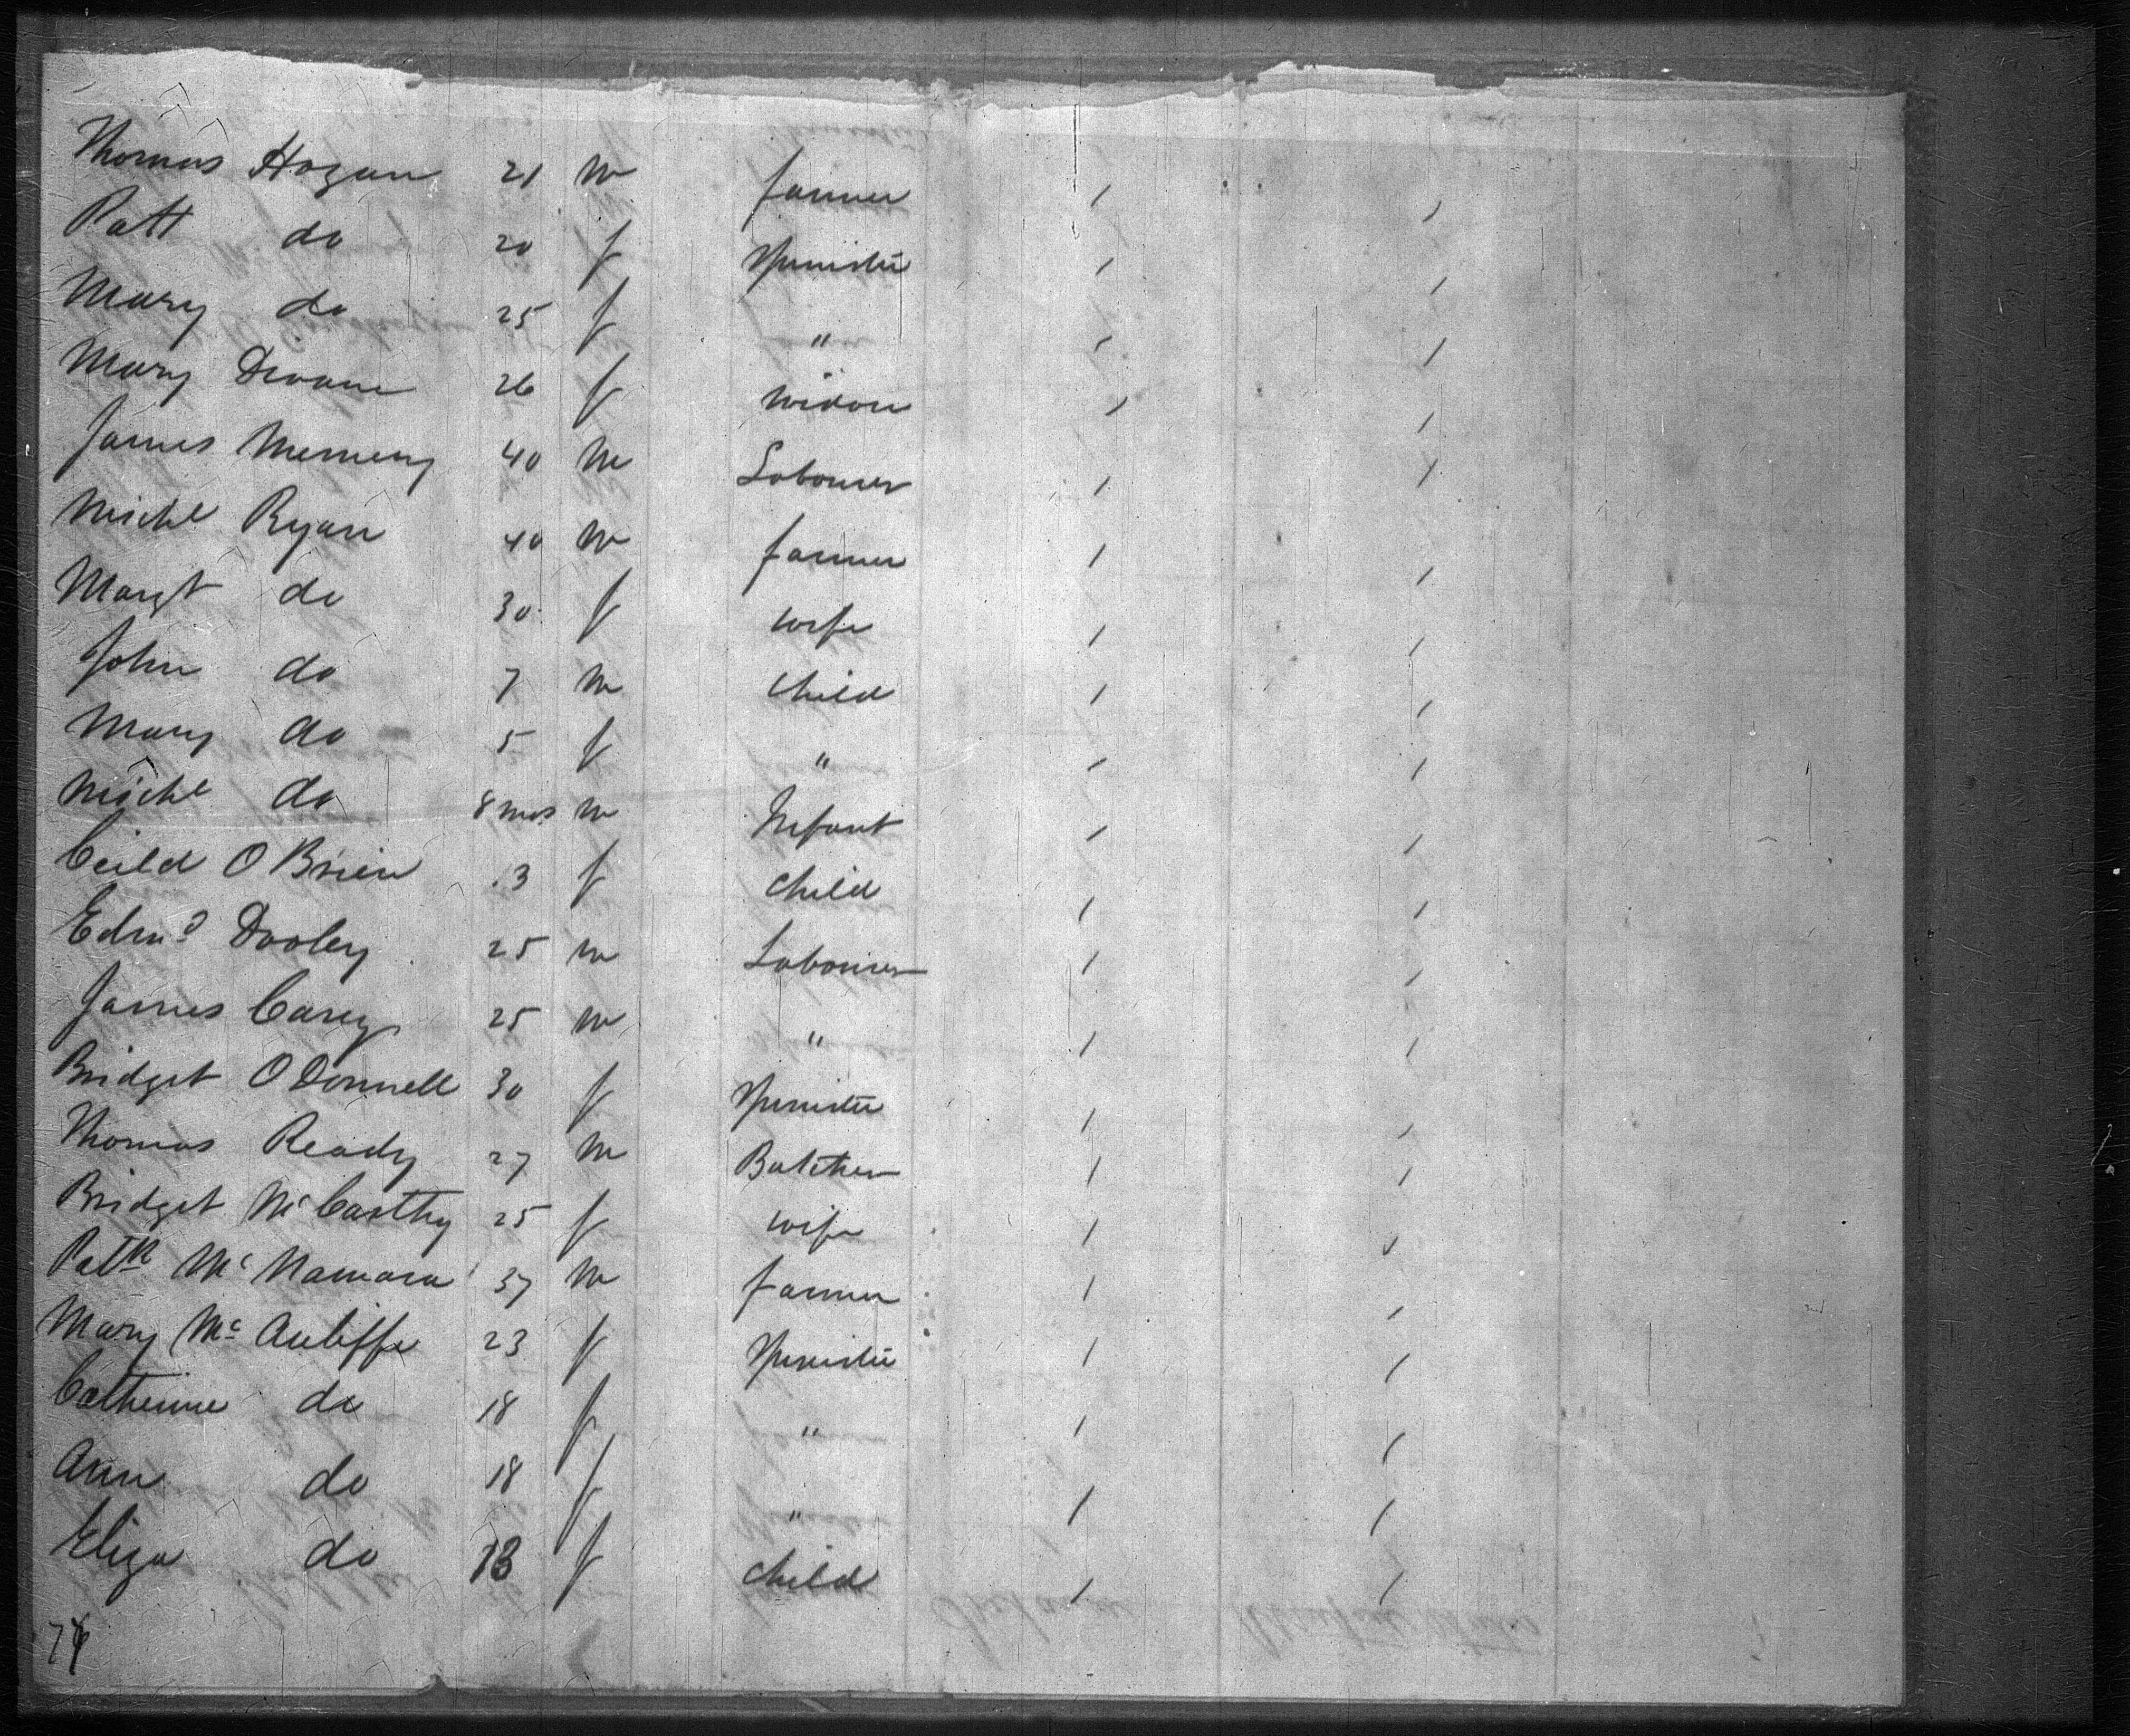 Thomas Hogan 21 m farmer / /
Patt do 20 f Spinster / /
Mary do 25 f " / /
Mary Divane 26 f Widow / /
James Memeny 40 m Labourer / /
Michl Ryan 40 m farmer / /
Margt do 30 f wife / /
John do 7 m child / /
Mary do 5 f " / /
Michl do 8 mos m Infant / /
Ceild O Brien 3 f child / /
Edmd Dooley 25 m Labourer / /
James Carey 25 m " / /
Bridget O Donnell 30 f Spinster / /
Thomas Ready 27 m Butcher / /
Bridget Mc Carthy 25 f wife / /
Patk Mc Namara 37 m farmer / /
Mary Mc Auliffe 23 f Spinster / /
Catherine do 18 f " / /
Ann do 18 f " / /
Eliza do 13 f child / /